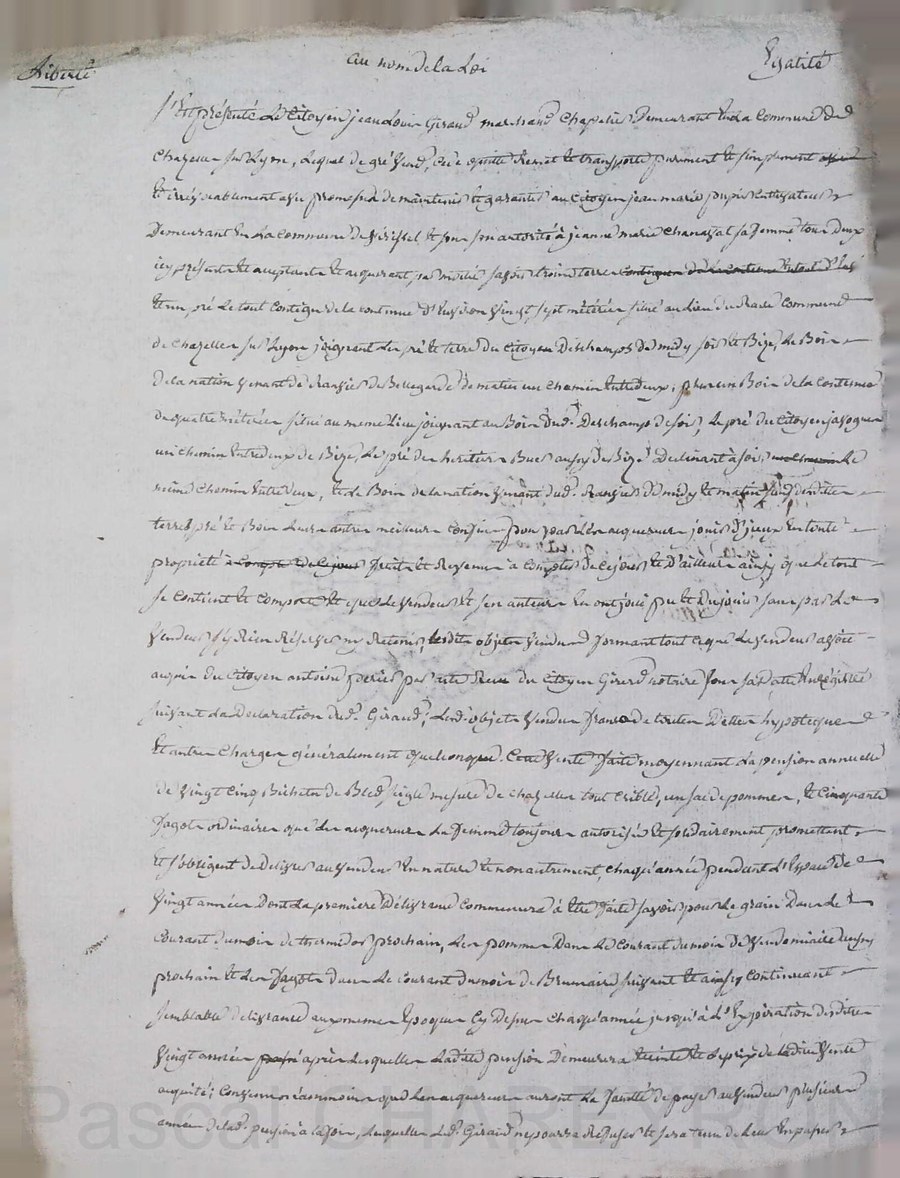 Liberté au nom de la Loi Egalité
S'est présenté Le Citoyen jean Louis Giraud marchand Chapelier Demeurant En la Commune de
Chazelle sur Lyon, Lequel de gré Vend, Cede quitte Remet et transporte purement et simplement
et irrévocablement avec promesse de maintenir et garantir au Citoyen jean marie pupier
Demeurant En La Commune de et sous son autorité à jeanne marie Chanavat sa femme tous deux
icy présents et acceptants et acquerant par moitié savoir trois terres
et un pré Le tout contigu de la contenue D'Environ Vingt sept métérées situé au Lieu du commune
de Chazelles sur Lyon joignant Les pré et terre du Citoyen Deschamps de midy soir et Bize, Le Bois
de la nation Venant de de Bellegarde de matin un chemin Entredeux, plus un Bois de la Contenue
de quatre métérées situé au meme Lieu joignant au Bois dud. Deschamps de soir, Le pré du Citoyen
un chemin Entredeux de Bize, Le pré des heritiers aussy de Bize Declinant à soir Le
même chemin Entredeux, et Le Bois de la nation Venant dud. de midy et matin desdites
terres pré et Bois Leurs autres meilleurs Confins pour par Les acquereurs jouir D'jceux En toute
propriété à Compter de Ce jour fruits et Revenus à compter de Ce jour et D'ailleurs ainsy que Le tout
se Contient et Comporte et que Le Vendeur et ses auteurs En ont joui pu et Du jouir sans par Le
Vendeur s'y Rien Réserver ny Retenir, lesdits objets Vendus formant tout Ce que Le Vendeur avoit
acquis du Citoyen antoine par acte Reçu du Citoyen Girard notaire sous sa Date Enregistré
suivant La Declaration dud. Giraud, Lesd. objets Vendus francs de toutes Dettes hypoteques
et autres Charges généralement quelconques. Cette Vente faite moyennant La pension annuelle
de Vingt Cinq Bichets de Bled seigle mesure de chazelles tout Criblé, un sac de pommes, et Cinquante
fagots ordinaires que Les acquereurs La femme toujours autorisée et solidairement promettent
et s'obligent de Delivrer au Vendeur En nature et non autrement, chaque année pendant L'Espace de
Vingt années Dont La premiere Délivrance Commencera à Etre faite savoir pour Le grain Dans Le
Courant du mois de thermidor prochain, Les pommes Dans Le Courant du mois de Vendemiaire aussy
prochain et Les fagots dans Le courant du mois de Brumaire suivant et ainsy continuant
semblable délivrance aux memes Epoques Cy Dessus chaque année jusqu'à L'Expiration desdites
Vingt années après Lesquelles Ladite pension Demeurera Eteinte et Le prix de Ladite Vente
acquité; Convenu néanmoins que Les acquereurs auront La faculté de payer au Vendeur plusieurs
années de lad. pension à la fois, Lesquelles Led. Giraud ne pourra Refuser et sera tenu de Leur En passer
Pascal CHARLYRON